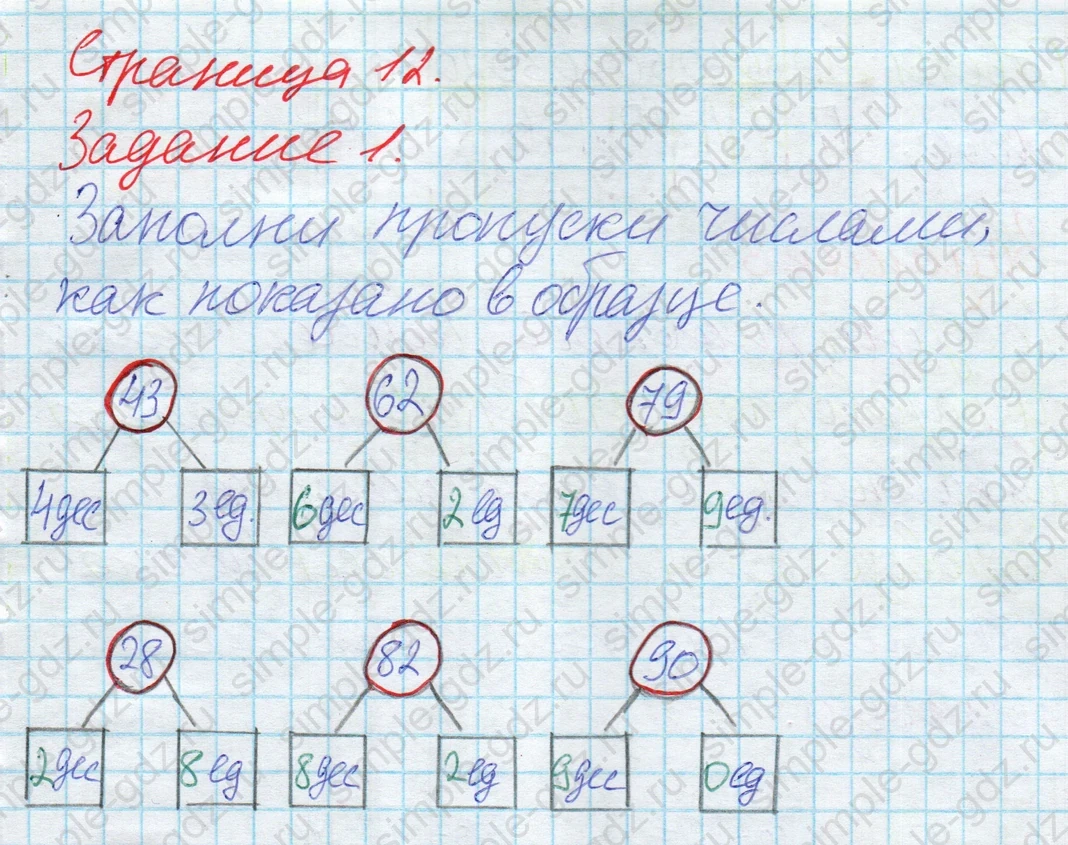 Страница 12.
Задание 1.
Заполни пропуски числами,
как показано в образце.
43 62 79
4дес 3ед. 6дес 2ед 7дес 9ед.
28 82 90
2дес 8ед 8дес 2ед 9дес 0ед
simple-gdz.ru